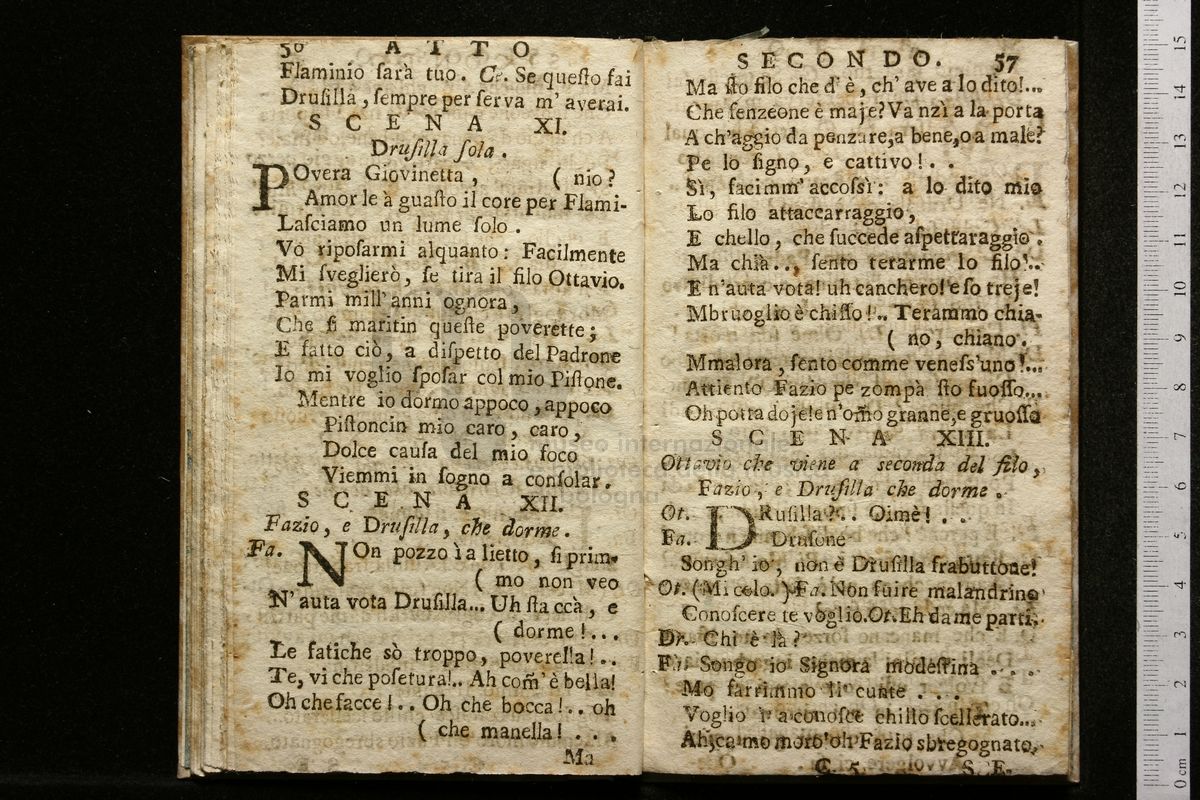 50 ATTO
Flaminio sarà tuo. Ce. Se questo fai
Drusilla, sempre per serva m' averai.
SCENA XI.
Drusilla sola.
POvera Giovinetta, ( nio?
Amor le à guasto il core per Flami-
Lasciamo un lume solo.
Vò riposarmi alquanto: Facilmente
Mi sveglierò, se tira il filo Ottavio.
Parmi mill' anni ognora,
Che si maritin queste poverette;
E fatto ciò, a dispetto del Padrone
Io mi voglio sposar col mio Pistone.
Mentre io dormo appoco, appoco
Pistoncin mio caro, caro,
Dolce causa del mio foco
Viemmi in sogno a consolar.
SCENA XII.
Fazio, e Drusilla, che dorme.
Fa. NOn pozzo ì a lietto, si prim-
( mo non veo
N'auta vota Drusilla... Uh sta ccà, e
( dorme!...
Le fatiche sò troppo, poverella!..
Te, vi che posetura!.. Ah com̃' è bella!
Oh che facce!.. Oh che bocca!.. oh
( che manella!...
Ma
SECONDO. 57
Ma sto filo che d' è, ch' ave a lo dito!...
Che senzeone è maje? Va nzì a la porta
A ch'aggio da penzare, a bene, o a male?
Pe lo signo, e cattivo!..
Sì, facimm' accossì: a lo dito mio
Lo filo attaccarraggio,
E chello, che succede aspettaraggio.
Ma chià.., sento terarme lo filo!..
E n'auta vota! uh canchero! e so treje!
Mbruoglio è chisso!.. Terammo chia-
( no, chiano.
Mmalora, sento comme veness'uno!...
Attiento Fazio pe zompà sto fuosso...
Oh potta doje! e n'om̃o granne, e gruosso
SCENA XIII.
Ottavio che viene a seconda del filo,
Fazio, e Drusilla che dorme.
Ot. DRusilla?.. Oimè!..
Fa. Drusone
Songh' io, non è Drusilla frabuttone!
Ot. (Mi celo.) Fa. Non fuire malandrino
Conoscere te voglio. Ot. Eh da me parti.
Dr. Chi è là?
Fa. Songo io Signora modestina....
Mo farrimmo li cunte....
Voglio ì a conosce chillo scellerato...
Ah, ca mo moro! oh Fazio sbregognato.
C 5 SE.
museo internazionale
e biblioteca
bologna
0 cm 1 2 3 4 5 6 7 8 9 10 11 12 13 14 15